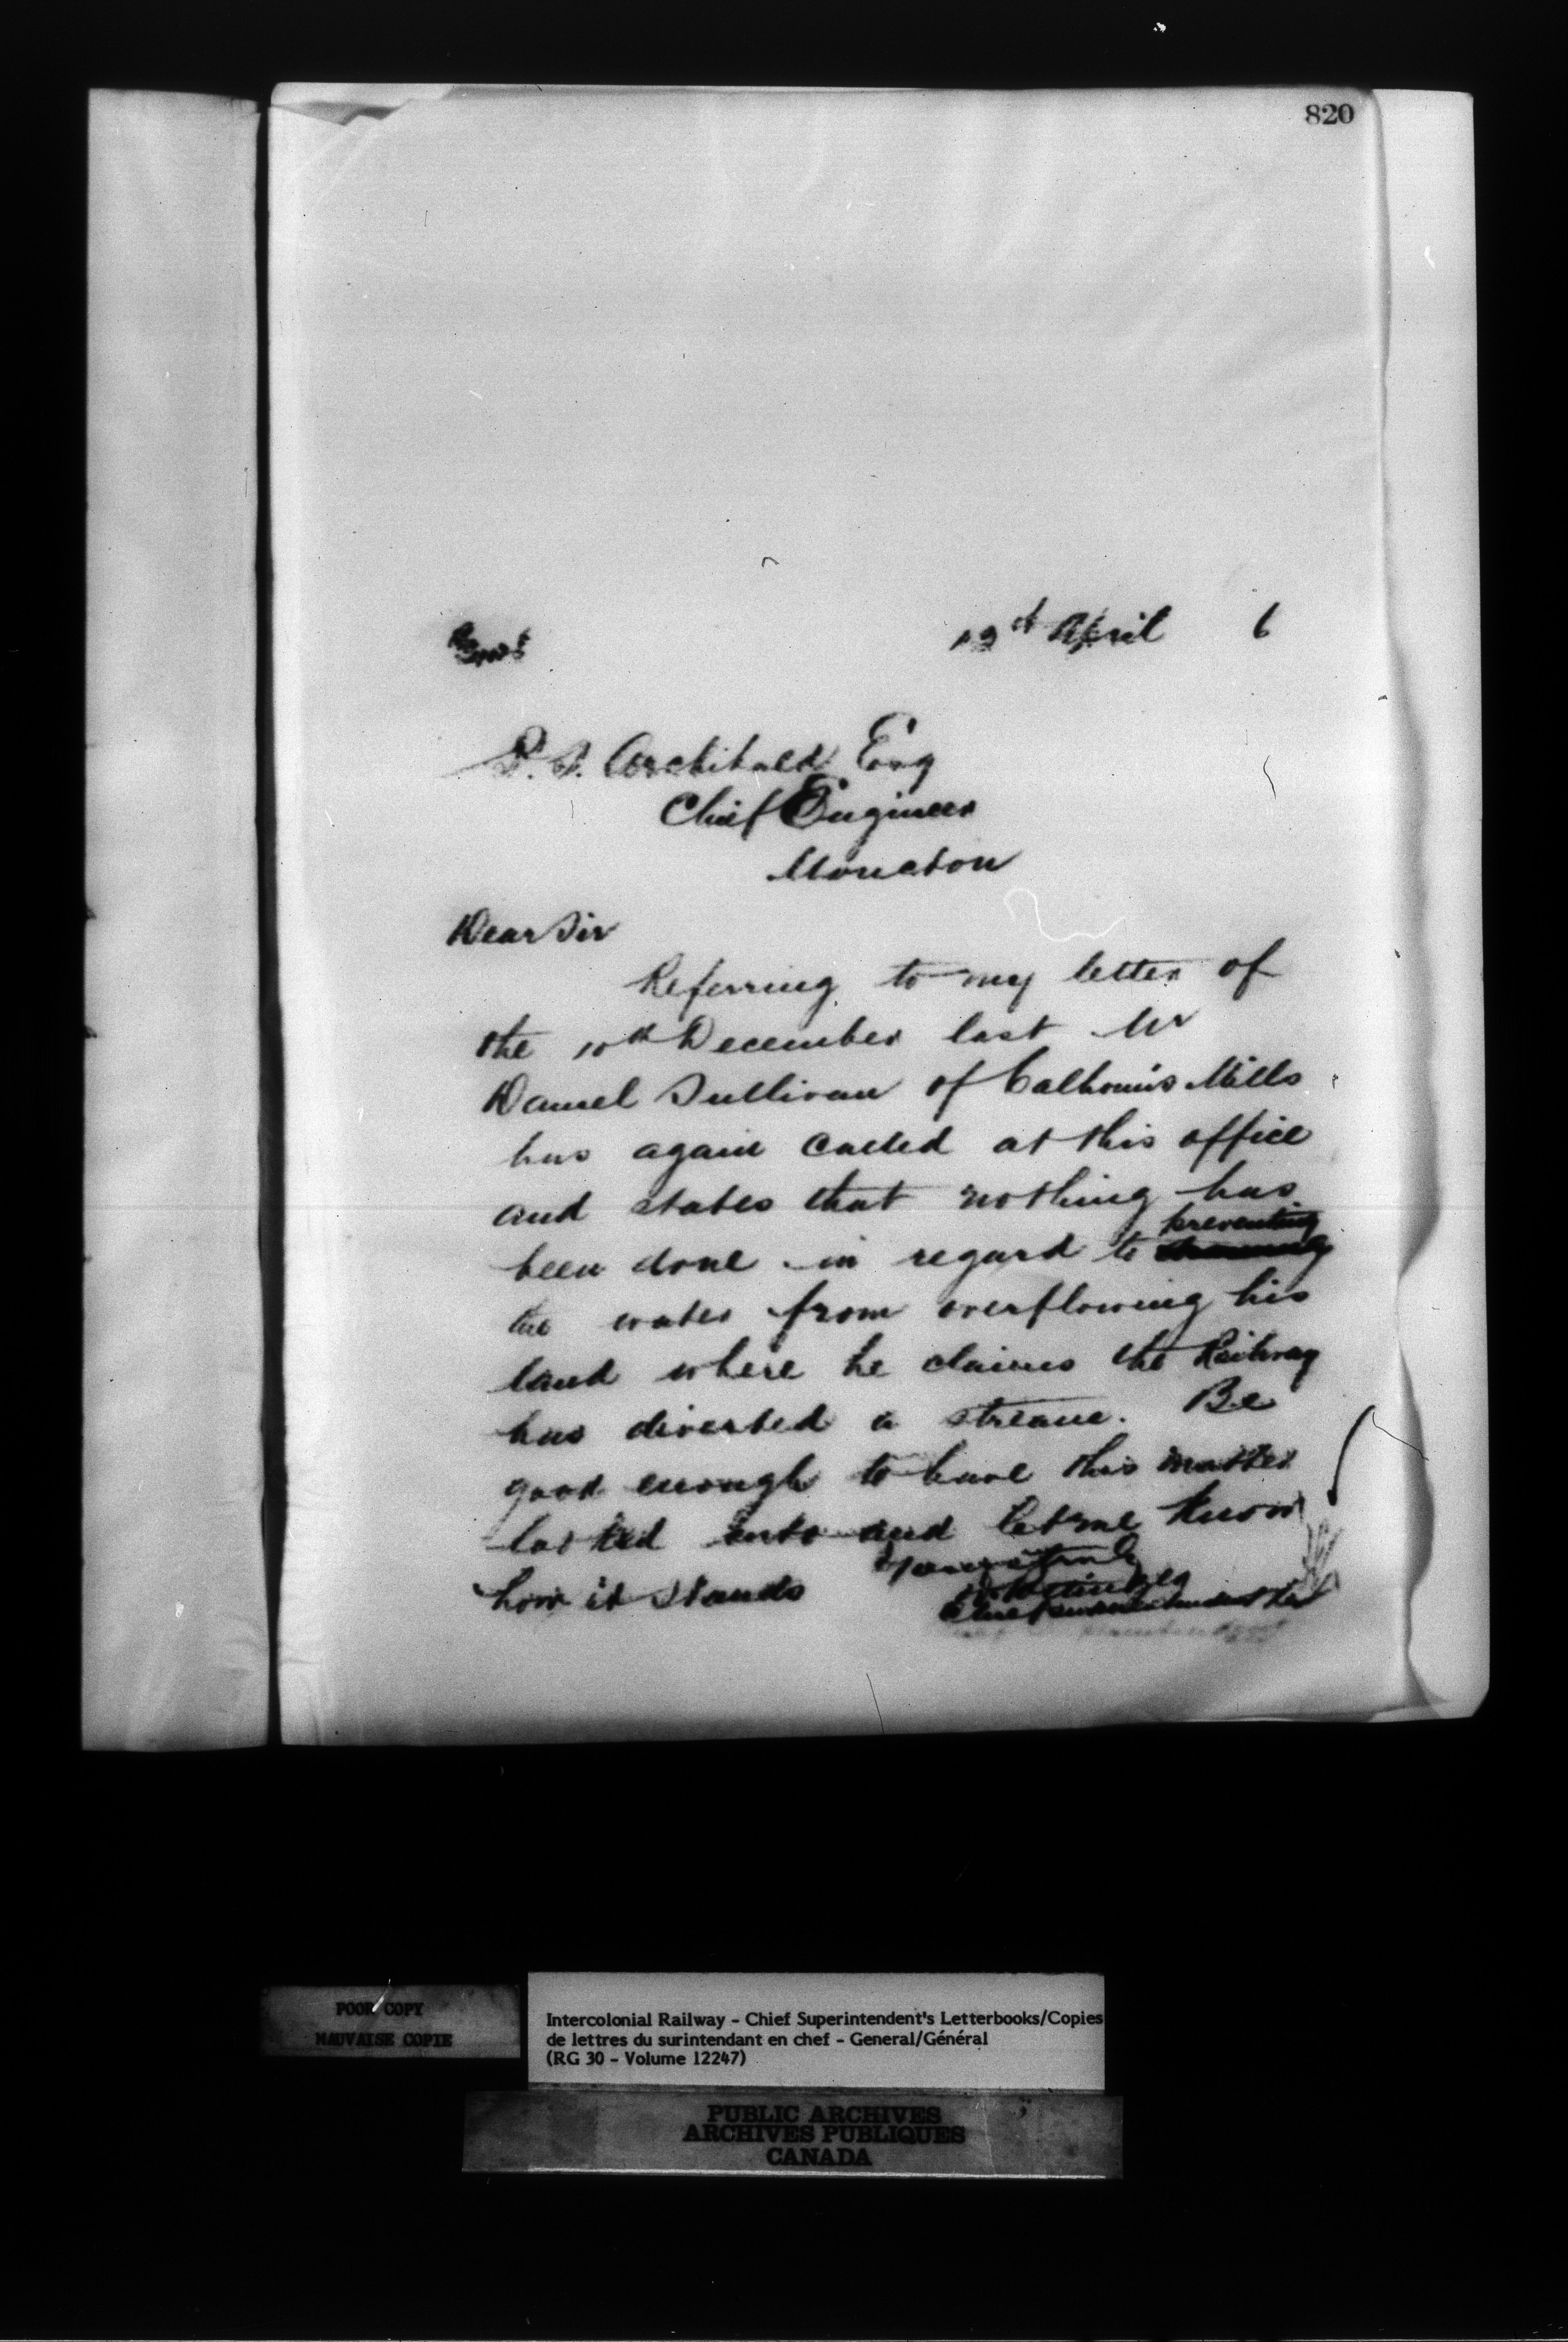 820
April 6
P. S. Archibald Esq
Chief Engineer
Moncton
Dear Sir
Referring to my letter of
the 10th December last Mr
Daniel Sullivan of Calhoun's Mills
has again called at this office
and states that nothing has
preventing
been done in regard to
the water from overflowing his
land where he claims the Railway
has diverted a stream. Be
good enough to have this matter
looked into and let me know
how it stands
Yours truly
POOR COPY
MAUVAISE COPIE
Intercolonial Railway - Chief Superintendent's Letterbooks/Copies
de lettres du surintendant en chef - General/Général
(RG 30 - Volume 12247)
PUBLIC ARCHIVES
ARCHIVES PUBLIQUES
CANADA